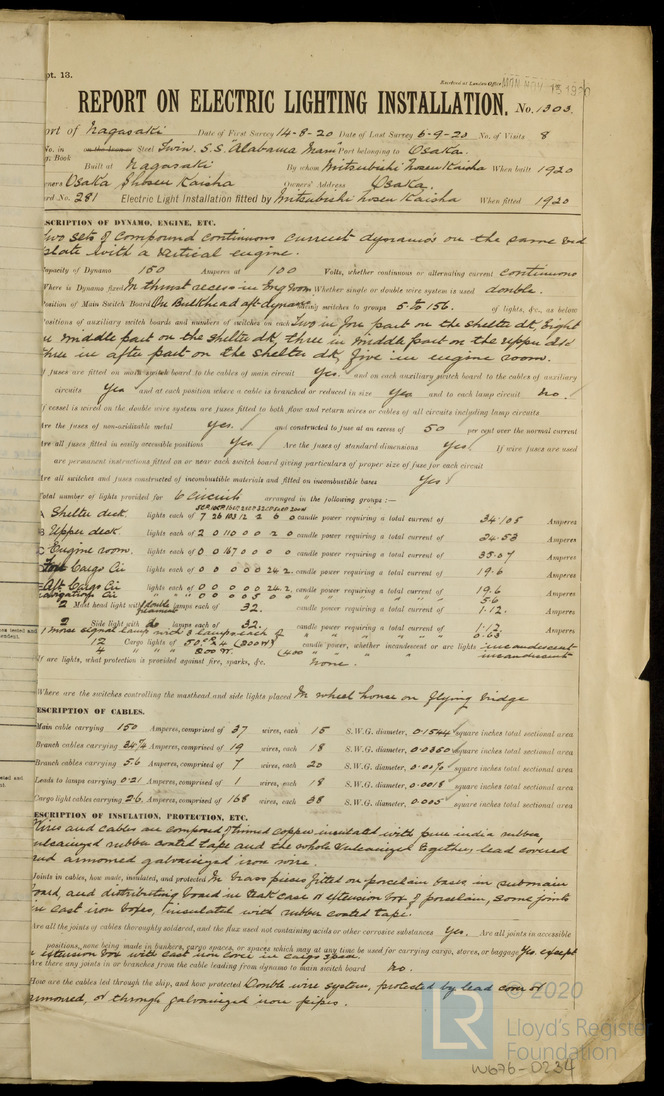 pt. 13.
Received at London Office MON NOV 15 1920
REPORT ON ELECTRIC LIGHTING INSTALLATION. No. 1303.
ort of Nagasaki Date of First Survey 14-8-20 Date of Last Survey 6-9-20 No. of Visits 8
No. in Steel Twin. S.S. "Alabama Maru" Port belonging to Osaka.
g. Book Built at Nagasaki By whom Mitsubishi Zosen Kaisha When built 1920
wners Osaka Shosen Kaisha Owners' Address Osaka.
rd No. 281 Electric Light Installation fitted by Mitsubishi Zosen Kaisha When fitted 1920
ESCRIPTION OF DYNAMO, ENGINE, ETC.
Two sets of compound continuous current dynamos on the same bed
plate with a vertical engine.
Capacity of Dynamo 150 Amperes at 100 Volts, whether continuous or alternating current continuous
Where is Dynamo fixed In thrust recess in Eng Room Whether single or double wire system is used double.
Position of Main Switch Board On Bulkhead aft dynamo having switches to groups 5 to 156. of lights, &c., as below
Positions of auxiliary switch boards and numbers of switches on each Two in fore part on the shelter dk, Eight
in middle part on the shelter dk, three in middle part on the upper dk
three in after part on the shelter dk five in engine room.
If fuses are fitted on main switch board to the cables of main circuit Yes. and on each auxiliary switch board to the cables of auxiliary
circuits Yes and at each position where a cable is branched or reduced in size Yes and to each lamp circuit No.
If vessel is wired on the double wire system are fuses fitted to both flow and return wires or cables of all circuits including lamp circuits
Are the fuses of non-oxidizable metal Yes. and constructed to fuse at an excess of 50 per cent over the normal current
Are all fuses fitted in easily accessible positions Yes Are the fuses of standard dimensions Yes If wire fuses are used
are permanent instructions fitted on or near each switch board giving particulars of proper size of fuse for each circuit
Are all switches and fuses constructed of incombustible materials and fitted on incombustible bases Yes
Total number of lights provided for 6 circuits arranged in the following groups :—
A Shelter deck. lights each of 7 26 103 12 2 6 0 candle power requiring a total current of 34.105 Amperes
B Upper deck. lights each of 2 0 110 0 0 2 0 candle power requiring a total current of 24.53 Amperes
C Engine room. lights each of 0 0 167 0 0 0 candle power requiring a total current of 35.07 Amperes
Fore Cargo Cir lights each of 0 0 0 0 0 24 2 candle power requiring a total current of 19.6 Amperes
Aft Cargo Cir lights each of 0 0 0 0 0 24 2 candle power requiring a total current of 19.6 Amperes
Navigation Cir " " " 0 0 0 0 5 0 0 " " " " 5.6
2 Mast head light with double filament lamps each of 32. candle power requiring a total current of 1.12. Amperes
2 Side light with do lamps each of 32. candle power requiring a total current of 1.12. Amperes
1 morse signal lamp with 3 lamps each of " " " " 0.63
12 Cargo lights of 50 24 (200W) candle power, whether incandescent or arc lights incandescent
4 " " 200 W. (400 " " " " incandescent
If arc lights, what protection is provided against fire, sparks, &c. None.
Where are the switches controlling the masthead and side lights placed In wheel house on flying bridge
ESCRIPTION OF CABLES.
Main cable carrying 150 Amperes, comprised of 37 wires, each 15 S.W.G. diameter, 0.1544 square inches total sectional area
Branch cables carrying 34¾ Amperes, comprised of 19 wires, each 18 S.W.G. diameter, 0.0350 square inches total sectional area
Branch cables carrying 5.6 Amperes, comprised of 7 wires, each 20 S.W.G. diameter, 0.0070 square inches total sectional area
Leads to lamps carrying 0.21 Amperes, comprised of 1 wires, each 18 S.W.G. diameter, 0.0018 square inches total sectional area
Cargo light cables carrying 26. Amperes, comprised of 168 wires, each 38 S.W.G. diameter, 0.005 square inches total sectional area
ESCRIPTION OF INSULATION, PROTECTION, ETC.
Wires and cables are composed of tinned copper insulated with pure india rubber,
vulcanized rubber coated tape and the whole vulcanized together, lead covered
and armoured galvanized iron wire.
Joints in cables, how made, insulated, and protected In brass pieces fitted on porcelain base, in submain
board, and distributing board in teak case or extension box of porcelain, some joints
in cast iron boxes, insulated with rubber coated tape.
Are all the joints of cables thoroughly soldered, and the flux used not containing acids or other corrosive substances Yes. Are all joints in accessible
positions, none being made in bunkers, cargo spaces, or spaces which may at any time be used for carrying cargo, stores, or baggage Yes. except
extension box with cast iron cover in cargo space.
Are there any joints in or branches from the cable leading from dynamo to main switch board No.
How are the cables led through the ship, and how protected Double wire system, protected by lead cover or
armoured, or through galvanized iron pipes.
© 2020
LR Lloyd's Register
Foundation
W676-0234